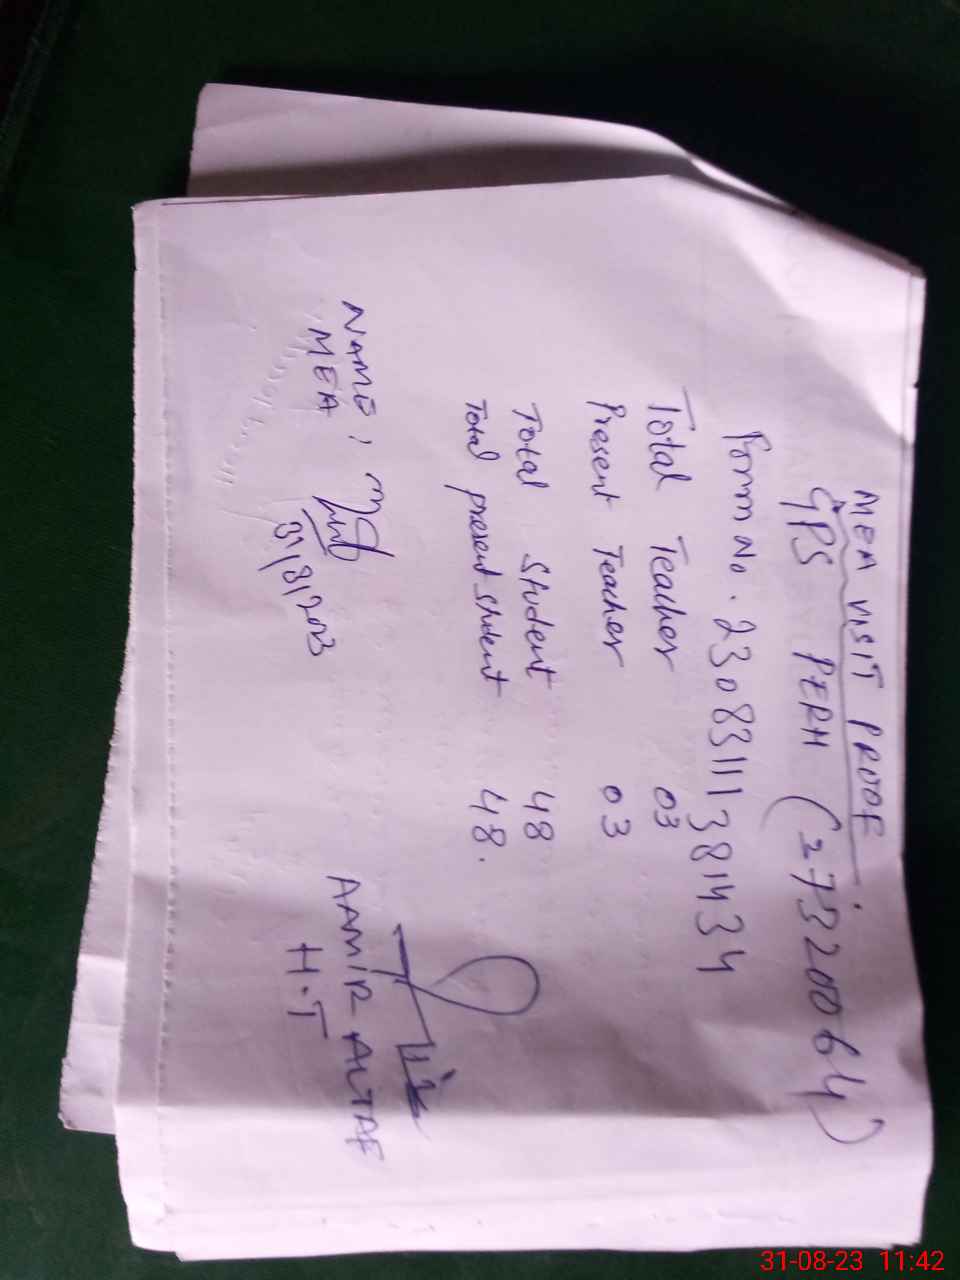 MEA VISIT PROOF
GPS PERH (27320064)
Form No. 23083111381434
Total Teacher 03
Present Teacher 03
Total Student 48
Total present student 48.
NAME :
MEA
31/8/2023
AAMIR ALTAF
H.T
31-08-23 11:42